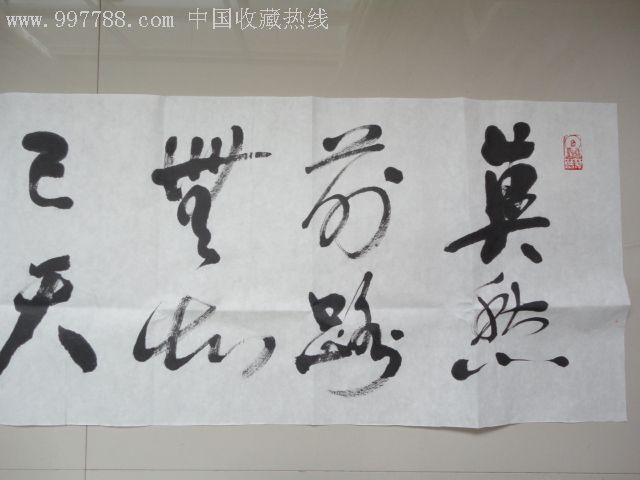 www.997788.com 中国收藏热线
莫愁
前路
無知
己天